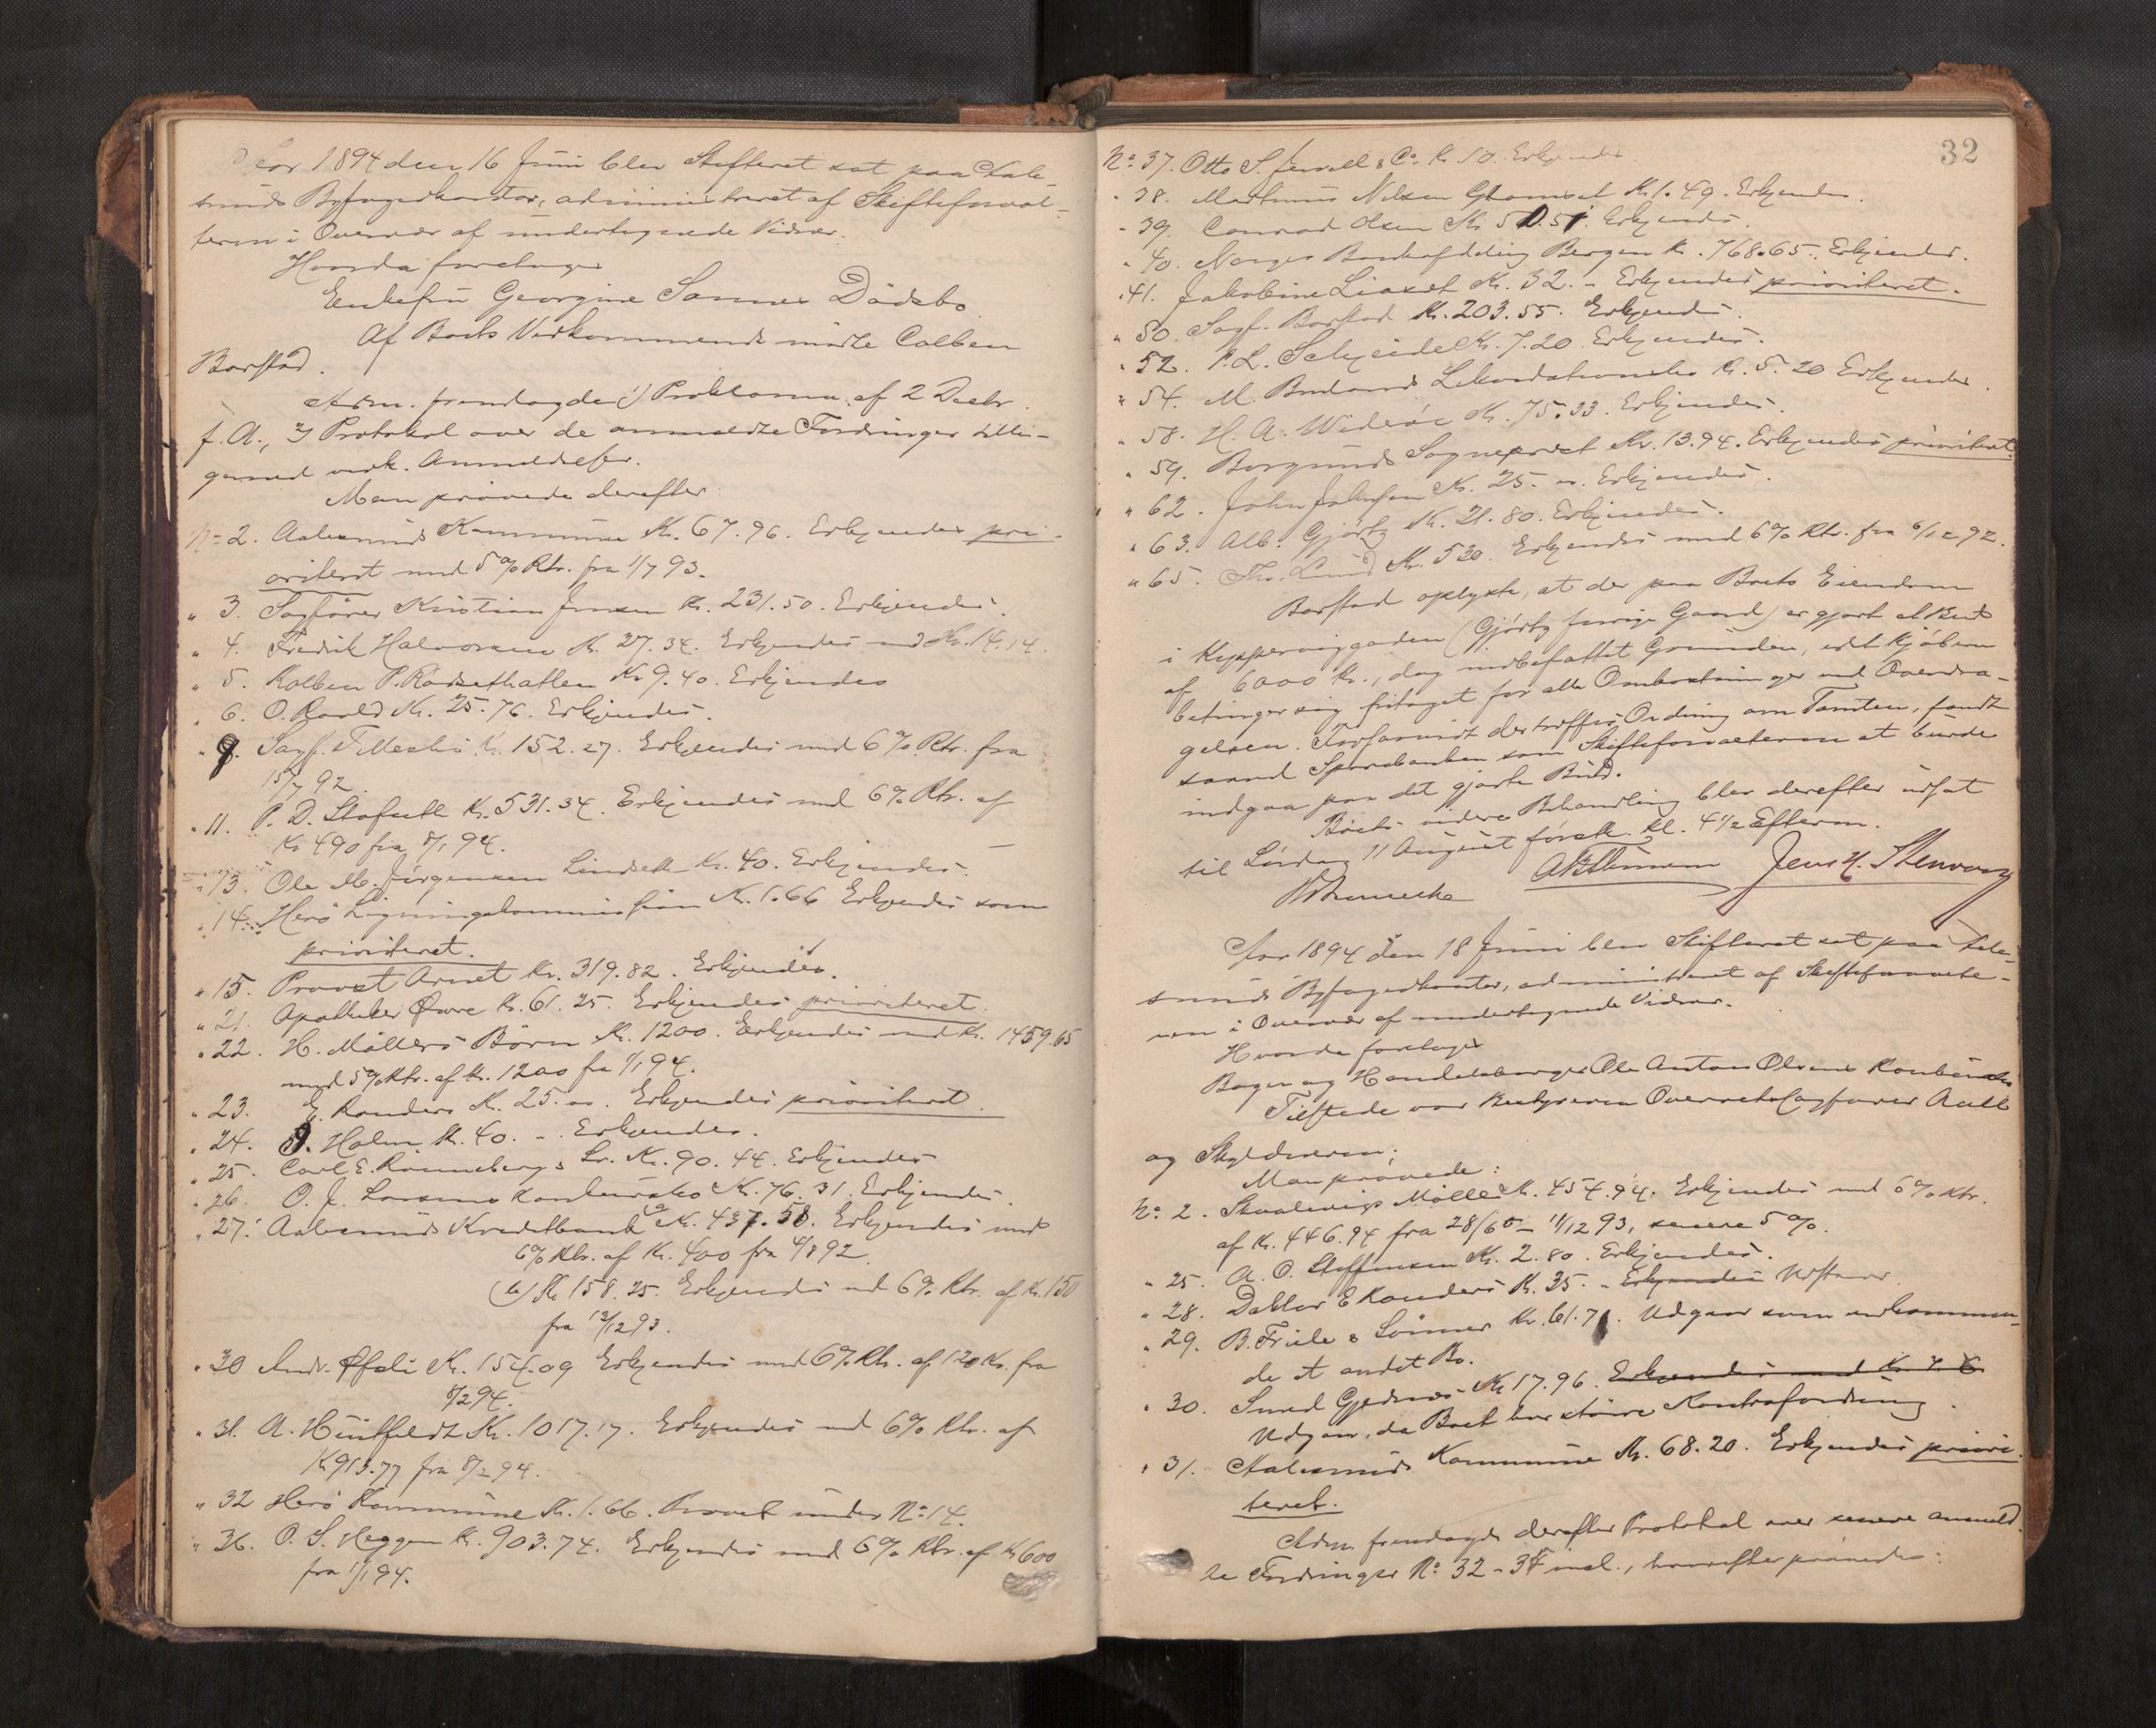 Aar 1894 den 16 Juni blev Skifteret sat paa Aale-
sunds Byfogedkontor, administreret af Skifteforval-
teren i Overvær af undertegnede Vidner.
Hvorda foretoges
Enkefru Georgine Sannes Dödsbo
Af Boets Vedkommende mödte Calben
Barstad.
Adm. fremlagde 1) Proklama af 2 Decbr.
f. A., 2) Protokol over de anmeldte Fordringer tilli-
gemed vedk. Anmeldelser.
Man prövede derefter
No 2. Aalesunds Kommune Kr. 67.96. Erkjendes pri-
oriteret med 5% Rtr. fra 1/7 93.
" 3. Sagförer Kristian Jensen Kr. 231.50. Erkjendes.
" 4. Fredrik Halvorsen Kr. 27.34. Erkjendes med Kr. 14.14.
" 5. Kolben P. Rødsethatlen Kr 9.40. Erkjendes
" 6. O. Roald Kr. 25.76. Erkjendes.
" 9. Sagf. Kr. 152.27. Erkjendes med 6% Rtr. fra
15/7 92.
" 11. P. D. Stafseth Kr. 531.34. Erkjendes med 6% Rtr. af
Kr 490 fra 8/1 94.
" 13. Ole M. Jörgensen Lindseth Kr. 40. Erkjendes.
" 14. Herö Ligningskommission Kr. 1.66 Erkjendes som
prioriteret.
" 15. Provst Arnet Kr. 319.82. Erkjendes.
" 21. Apotheker Øwre Kr. 61.25. Erkjendes prioriteret.
" 22. H. Möllers Börn Kr. 1200. Erkjendes med Kr. 1459.65
med 5% Rtr. af Kr. 1200 fra 1/1 94.
" 23. E. Randers Kr. 25.00. Erkjendes prioriteret.
" 24. J. Holm Kr. 40. ". Erkjendes.
" 25. Carl E. Rönneberg & Sr. Kr. 90.44. Erkjendes
" 26. O. J. Larsens Konkursbo Kr. 76.31. Erkjendes.
" 27. Aalesunds Kreditbank a) Kr. 437.58. Erkjendes med
6% Rtr. af Kr. 400 fra 4/8 92.
b) Kr 158.25. Erkjendes med 6% Rtr. af Kr. 150
fra 12/12 93.
" 30 Andr. Øfsti Kr. 154.09 Erkjendes med 6% Rtr. af 120 Kr. fra
8/2 94.
" 31. A. Hüitfeldt Kr. 1017.17. Erkjendes med 6% Rtr. af
Kr 913.77 fra 8/2 94.
" 32 Herö Kommune Kr. 1.66. Prövet under No 14.
" 36. O. S. Heggem Kr. 903.74. Erkjendes med 6% Rtr. af Kr 600
fra 1/1 94.
32
No 37. Otto S. Jervell & Co. Kr 10. Erkjendes.
" 38. Mathias Nilsen Kr. 1.49. Erkjendes.
" 39. Conrad Olsen Kr. 50.51. Erkjendes.
" 40. Norges Bankafdeling Bergen Kr. 768.65. Erkjendes.
" 41. Jakobine Liaset Kr. 32. " Erkjendes prioriteret.
" 50. Sagf. Barstad Kr. 203.55. Erkjendes.
" 52. P. L. Schjeidel Kr. 7.20. Erkjendes.
" 54. M. Likvidationsbo Kr. 5.20 Erkjendes.
" 58. H. A. Wideröe Kr. 75.33. Erkjendes.
" 59. Borgunds Sogneprest Kr. 13.94. Erkjendes prioriteret.
" 62. John Johnsen Kr. 25.00. Erkjendes.
" 63. Alb. Gjörtz Kr. 21.80. Erkjendes.
" 65. Th. Lund Kr. 530. Erkjendes med 6% Rtr. fra 6/12 92.
Barstad oplyste, at der paa Boets Eiendom
i Kipperviggaden (Gjörtz forrige Gaard) er gjort et Bud
af 6000 Kr., dog indbefattet Grunden, idet Kjöberen
betinger sig fritaget for alle Omkostninger ved Overdra-
gelsen. Forsaavidt der træffes Ordning om Tomten, fandt
saavel Sparebanken som Skifteforvalteren at burde
indgaa paa det gjorte Bud.
Boets videre Behandling blev derefter udsat
til Lördag 11 August förstk. Kl. 4 1/2 Efterm.
Jens H. Stenvaag
Aar 1894 den 18 Juni blev Skifteret sat paa Aale-
sunds Byfogedkontor, administreret af Skifteforvalte-
ren i Overvær af undertegnede Vidner.
Hvorda foretoges
Bager og Handelsborger Ole Anton Olsens Konkursbo
Tilstede var Bestyreren Overretssagförer Aall
og Skyldneren;
Man prövede:
No 2. Skvalevigs Mölle Kr. 454.94. Erkjendes med 6% Rtr.
af Kr. 446.94 fra 28/6 - 11/12 93, senere 5%.
" 25. A. O. Steffensen Kr. 2.80. Erkjendes.
" 28. Doktor E Randers Kr. 35. " Erkjendes Udstaar.
" 29. B. Friele & Sönner Kr. 61.71. Udgaar som vedkommen-
de et andet Bo.
" 30. Smed Gjedsnes Kr 17.96. Erkjendes med Kr.
Udgaar, da Boet har större Kontrafordring.
" 31. Aalesunds Kommune Kr. 68.20. Erkjendes priori-
teret.
Adm. fremlagde derefter Protokol over senere anmeld-
te Fordringer No 32 - 34 incl., hvorefter prövedes: